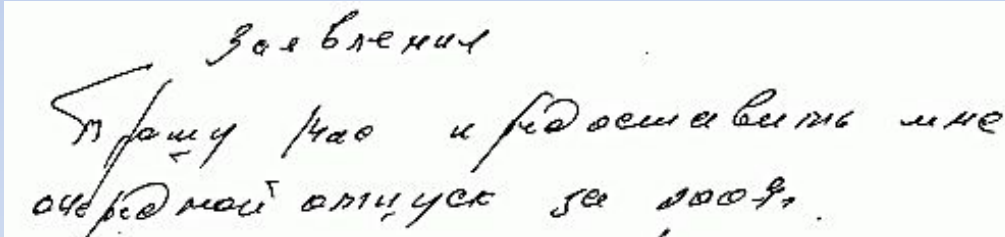 Заявления
Прошу Вас предоставить мне
очередной отпуск за 2009г.